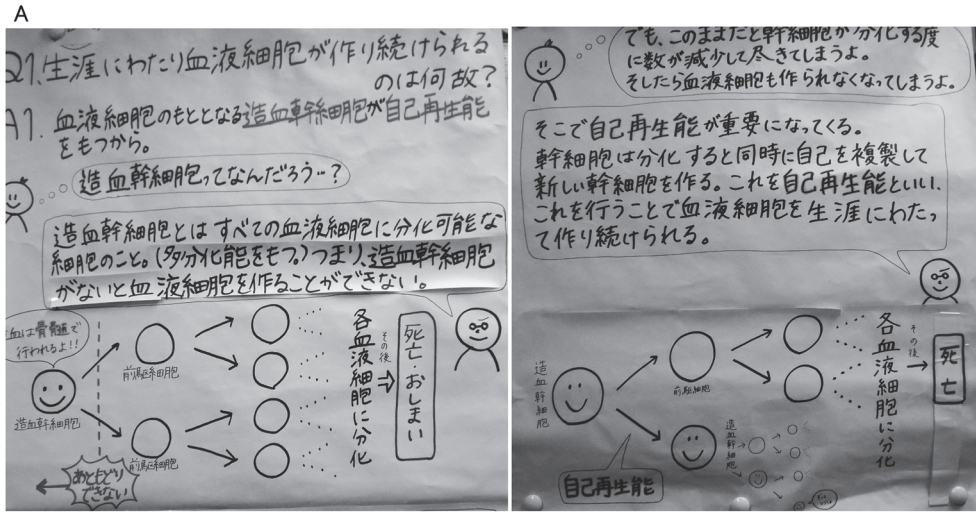 A
Q1.生涯にわたり血液細胞が作り続けられる
のは何故?
A1.血液細胞のもととなる造血幹細胞が自己再生能
をもつから。
造血幹細胞ってなんだろう…?
造血幹細胞とは すべての血液細胞に分化可能な
細胞のこと。(多分化能をもつ。)つまり、造血幹細胞
がないと血液細胞を作ることができない。
血は骨髄で
行われるよ!!
造血幹細胞
前駆細胞
前駆細胞
あともどり
できない
各血液細胞に分化
その後
死亡 おしまい
でも、このままだと幹細胞が分化する度
に数が減少して尽きてしまうよ。
そしたら血液細胞も作られなくなってしまうよ。
そこで自己再生能が重要になってくる。
幹細胞は分化すると同時に自己を複製して
新しい幹細胞を作る。これを自己再生能といい、
これを行うことで血液細胞を生涯にわたっ
て作り続けられる。
造血幹細胞
前駆細胞
自己再生能
造血幹細胞
各血液細胞に分化
その後
死亡